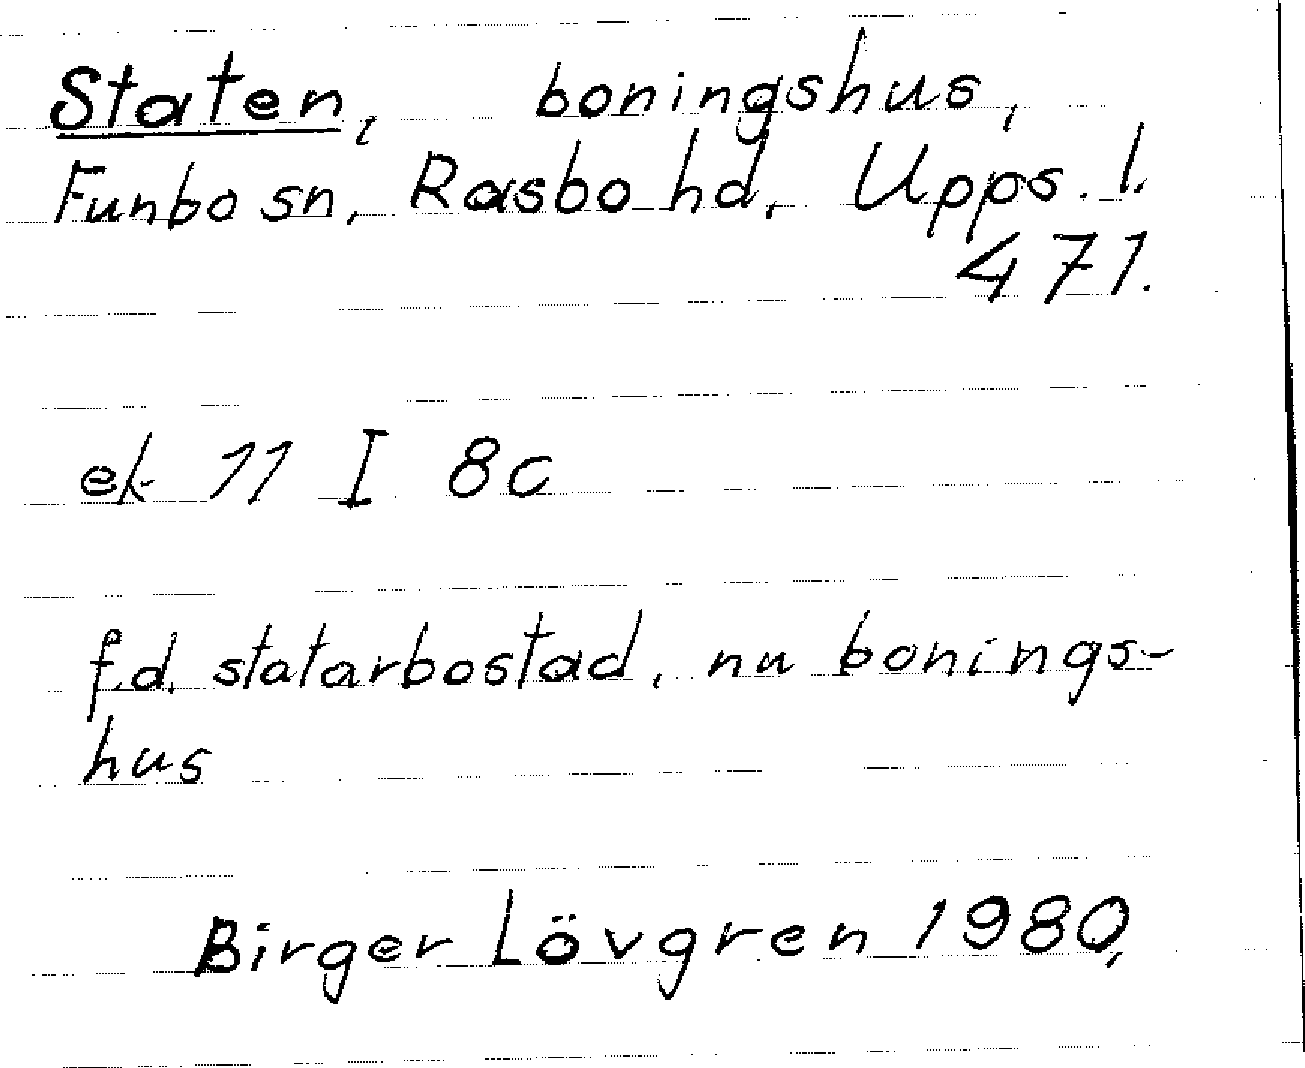 Staten, boningshus,
Funbo sn, Rasbo hd, Upps. l.
471.
ek 11 I 8c
f.d. statarbostad, nu bonings-
hus
Birger Lövgren 1980,